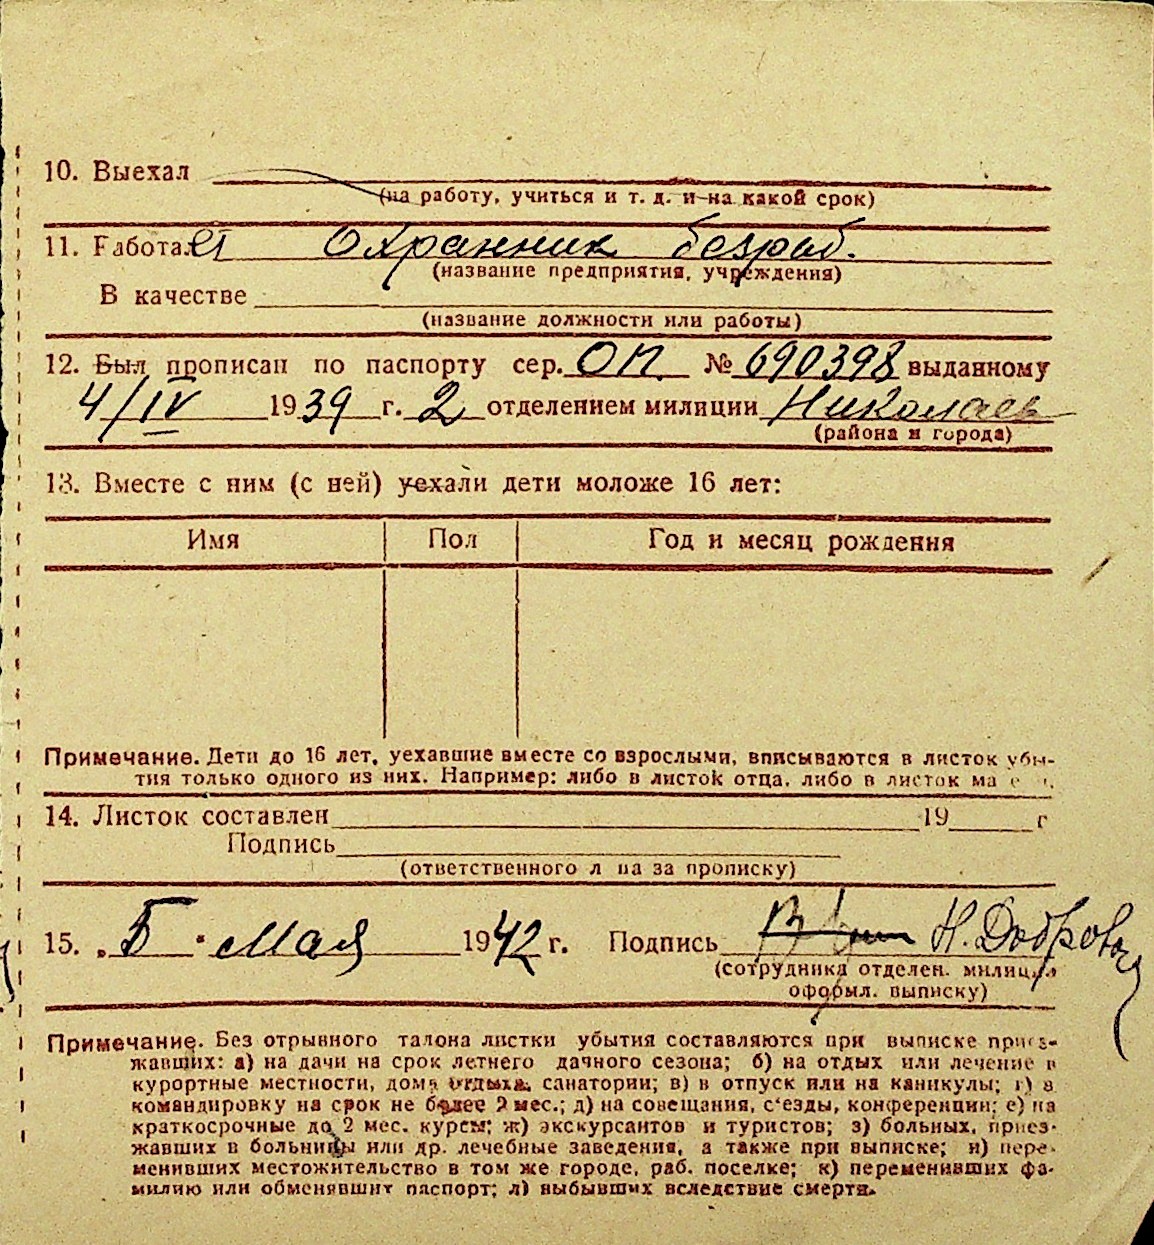 10. Выехал
(на работу, учиться и т. д. и на какой срок)
11. Работает Охранник безраб.
(название предприятия, учреждения)
В качестве
(название должности или работы)
12. Был прописан по паспорту сер. ОП № 690398 выданному
4/IV 1939 г. 2 отделением милиции Николаев
(района и города)
13. Вместе с ним (с ней) уехали дети моложе 16 лет:
Имя Пол Год и месяц рождения
Примечание. Дети до 16 лет, уехавшие вместе со взрослыми, вписываются в листок убы-
тия только одного из них. Например: либо в листок отца, либо в листок
14. Листок составлен 19 г
Подпись
(ответственного л ца за прописку)
15. „5" Мая 1942 г. Подпись Н. Добров
(сотрудника отделен. милиции
оформл. выписку)
Примечание. Без отрывного талона листки убытия составляются при выписке приез-
жавших: а) на дачи на срок летнего дачного сезона; б) на отдых или лечение в
курортные местности, дома отдыха, санатории; в) в отпуск или на каникулы; г) в
командировку на срок не более 2 мес.; д) на совещания, с'езды, конференции; е) на
краткосрочные до 2 мес. курсы; ж) экскурсантов и туристов; з) больных, приез-
жавших в больницы или др. лечебные заведения, а также при выписке; и) пере-
менивших местожительство в том же городе, раб. поселке; к) переменивших фа-
милию или обменявшит паспорт; л) выбывших вследствие смерти.